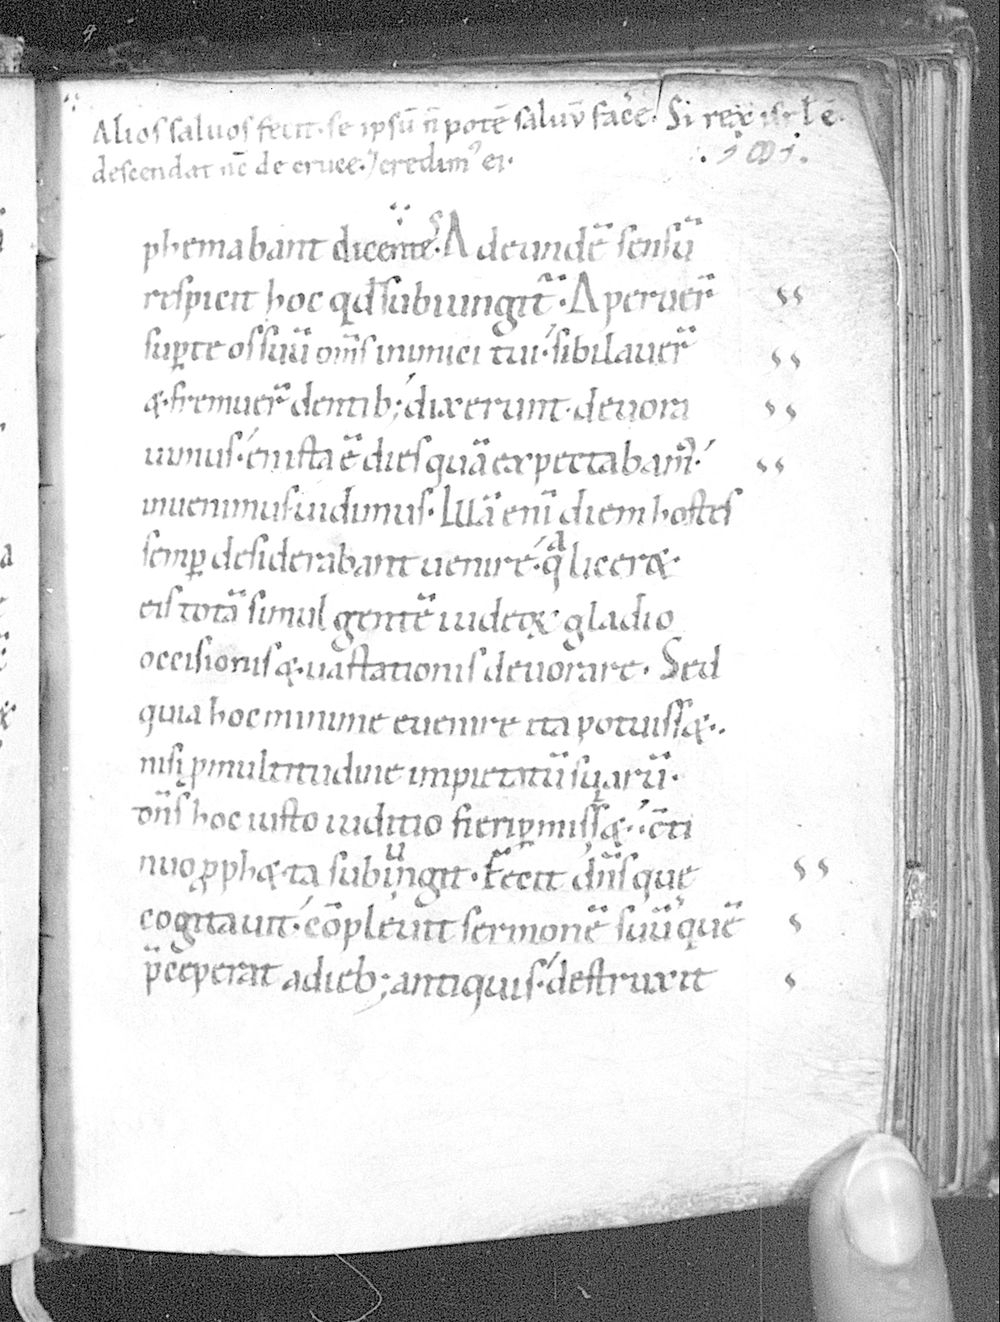 Alios saluos fecit· se ipsū n̄ potē saluū facē· Si rex isrl ē·
descendat nc̄ de cruce· ⁊ credim᷒ ei·
phemabant dicentes· Ad eundē sensū
respicit hoc qđ subiungit̄· Aperuer̄
sup te os suū om̄s inimici tui· sibilauer̄
&· fremuer̄ dentib; dixerunt· deuora
uimus· en ista ē dies quā expectabam᷒·
inuenimus uidimus· Illā enī diem hostes
semꝑ desiderabant uenire· qa licer&
eis totā simul gentē iudeoꝝ gladio
occisionis &· uastationis deuorare· Sed
quia hoc minime euenire ita potuiss&·
nisi ꝓ multitudine impietatū suarū·
dn̄s hoc iusto iuditio fieri ꝑmiss&· c̄ti
nuo ꝓph&a subiungit· Fecit dn̄s que
cogitauit· cōpleuit sermonē suū quē
p̄ceperat a dieb; antiquis· destruxit